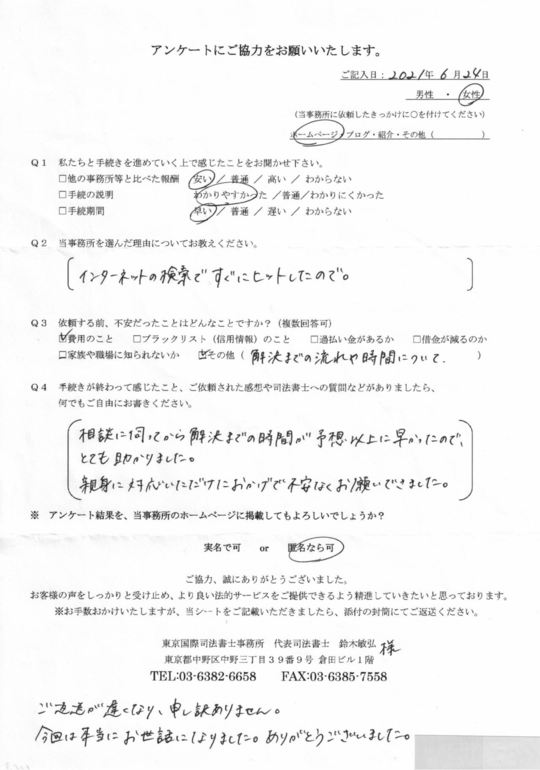 アンケートにご協力をお願いいたします。
ご記入日：2021年 6月24日
男性 ・ 女性
(当事務所に依頼したきっかけに○を付けてください)
ホームページ・ブログ・紹介・その他（　　　　　）
Q1　私たちと手続きを進めていく上で感じたことをお聞かせ下さい。
□他の事務所等と比べた報酬　安い ／ 普通 ／ 高い ／ わからない
□手続の説明　わかりやすかった ／普通／わかりにくかった
□手続期間　早い ／ 普通 ／ 遅い ／ わからない
Q2　当事務所を選んだ理由についてお教えください。
インターネットの検索ですぐにヒットしたので。
Q3　依頼する前、不安だったことはどんなことですか？（複数回答可）
☑費用のこと　□ブラックリスト（信用情報）のこと　□過払い金があるか　□借金が減るのか
□家族や職場に知られないか　☑その他（ 解決までの流れや時間について.　）
Q4　手続きが終わって感じたこと、ご依頼された感想や司法書士への質問などがありましたら、
何でもご自由にお書きください。
相談に伺ってから解決までの時間が予想以上に早かったので、
とても助かりました。
親身に対応いただけたおかげで不安なくお願いできました。
※　アンケート結果を、当事務所のホームページに掲載してもよろしいでしょうか？
実名で可　or　匿名なら可
ご協力、誠にありがとうございました。
お客様の声をしっかりと受け止め、より良い法的サービスをご提供できるよう精進していきたいと思っております。
※お手数おかけいたしますが、当シートをご記載いただきましたら、添付の封筒にてご返送ください。
東京国際司法書士事務所　代表司法書士　鈴木敏弘 様
東京都中野区中野三丁目39番9号 倉田ビル1階
TEL:03-6382-6658　FAX:03-6385-7558
ご返送が遅くなり、申し訳ありません。
今回は本当にお世話になりました。ありがとうございました。